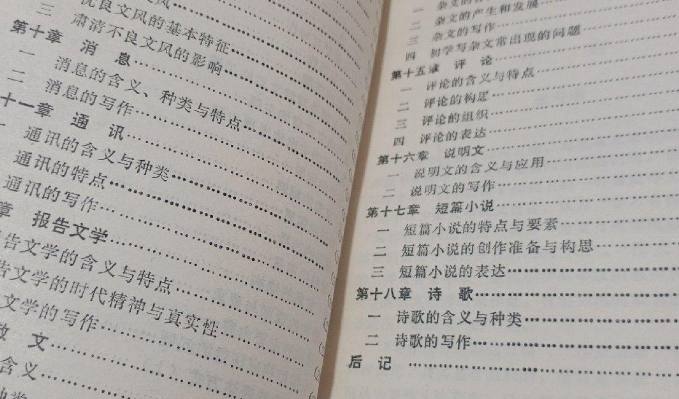 文风
优良文风的基本特征
三 肃清不良文风的影响
第十章 消 息
一 消息的含义、种类与特点
二 消息的写作
十一章 通 讯
通讯的含义与种类
通讯的特点
通讯的写作
章 报告文学
告文学的含义与特点
告文学的时代精神与真实性
文学的写作
散 文
含义
种类
一 杂文的
二 杂文的产生和发展
三 杂文的写作
四 初学写杂文常出现的问题
第十五章 评 论
一 评论的含义与特点
二 评论的构思
三 评论的组织
四 评论的表达
第十六章 说明文
一 说明文的含义与应用
二 说明文的写作
第十七章 短篇小说
一 短篇小说的特点与要素
二 短篇小说的创作准备与构思
三 短篇小说的表达
第十八章 诗 歌
一 诗歌的含义与种类
二 诗歌的写作
后 记